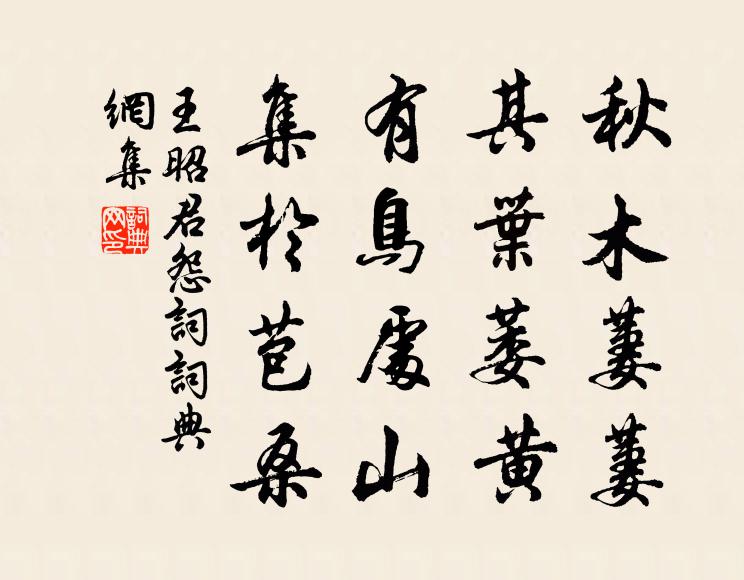 秋木萋萋
其葉萎黃
有鳥處山
集於苞桑
王昭君怨詞詞典
網集
詞典
网印